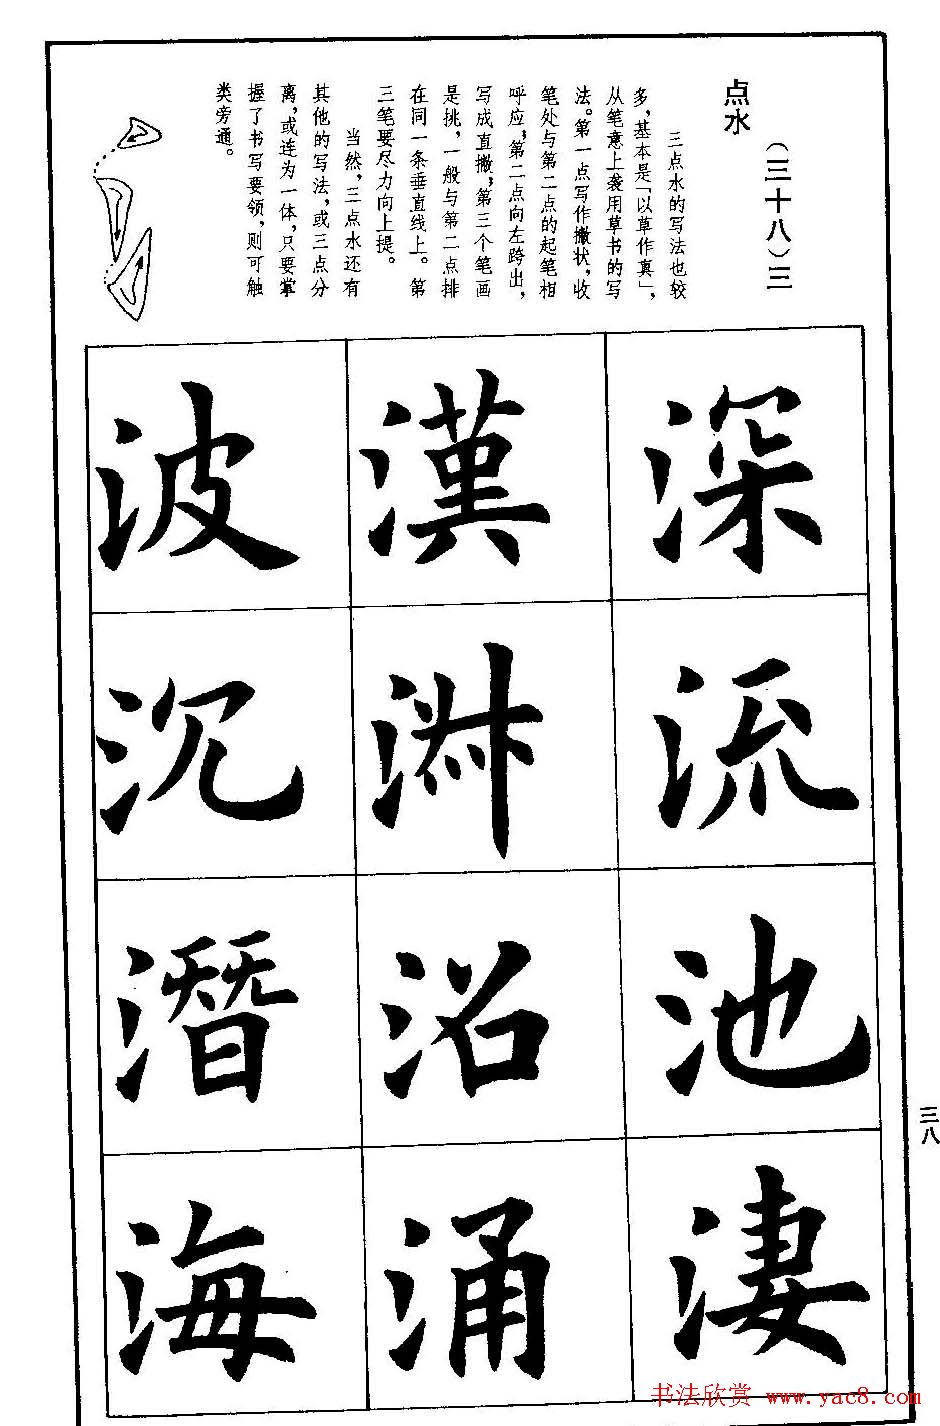 （三十八）三
点水
三点水的写法也较
多，基本是「以草作真」，
从笔意上袭用草书的写
法。第一点写作撇状，收
笔处与第二点的起笔相
呼应，第二点向左跨出，
写成直撇，第三个笔画
是挑，一般与第二点排
在同一条垂直线上。第
三笔要尽力向上提。
当然，三点水还有
其他的写法，或三点分
离，或连为一体，只要掌
握了书写要领，则可触
类旁通。
深流池淒
漢沿涌
波沉潛海
三八
书法欣赏 www.yac8.com